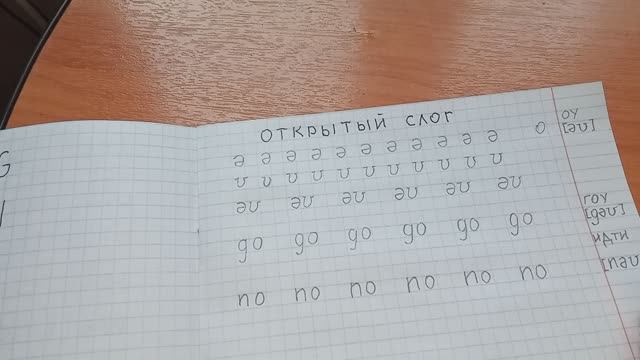 ОТКРЫТЫЙ СЛОГ
ə ə ə ə ə ə ə ə ə ə ə o
оу
[əʊ]
ʊ ʊ ʊ ʊ ʊ ʊ ʊ ʊ ʊ ʊ ʊ
əʊ əʊ əʊ əʊ əʊ əʊ
go go go go go go
гоу
[gəʊ]
идти
no no no no no no
[nəʊ